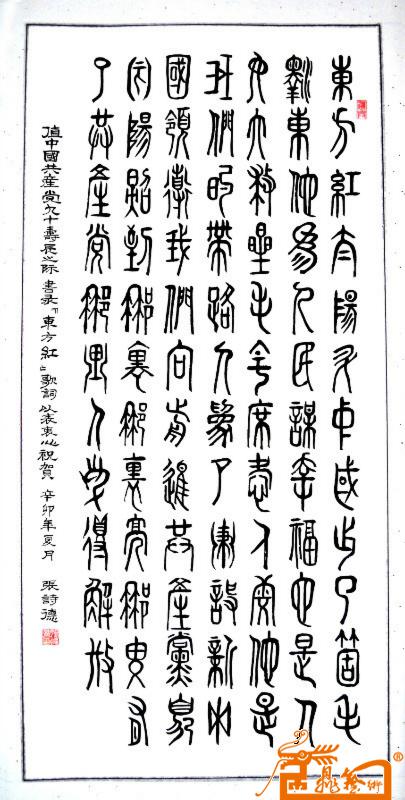 東方紅太陽升中國出了箇毛
澤東他為人民謀幸福他是人
民大救星毛主席愛人民他是
我們的帶路人為了建設新中
國領導我們向前進共產黨像
太陽照到哪裏哪裏亮哪里有
了共產黨哪里人民得解放
值中國共產党九十壽辰之際 書录『東方紅』歌詞 以表衷心祝賀 辛卯年夏月 張詩德